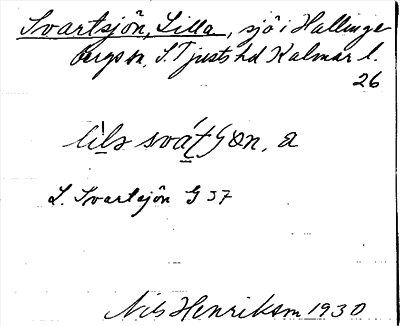 Svartsjön, Lilla, sjö i Hallinge-
bergs sn, S. Tjusts hd Kalmar l.
26
lìlə svát ʃøn, a
L. Svartsjön G 37
Nils Henrikson 1930